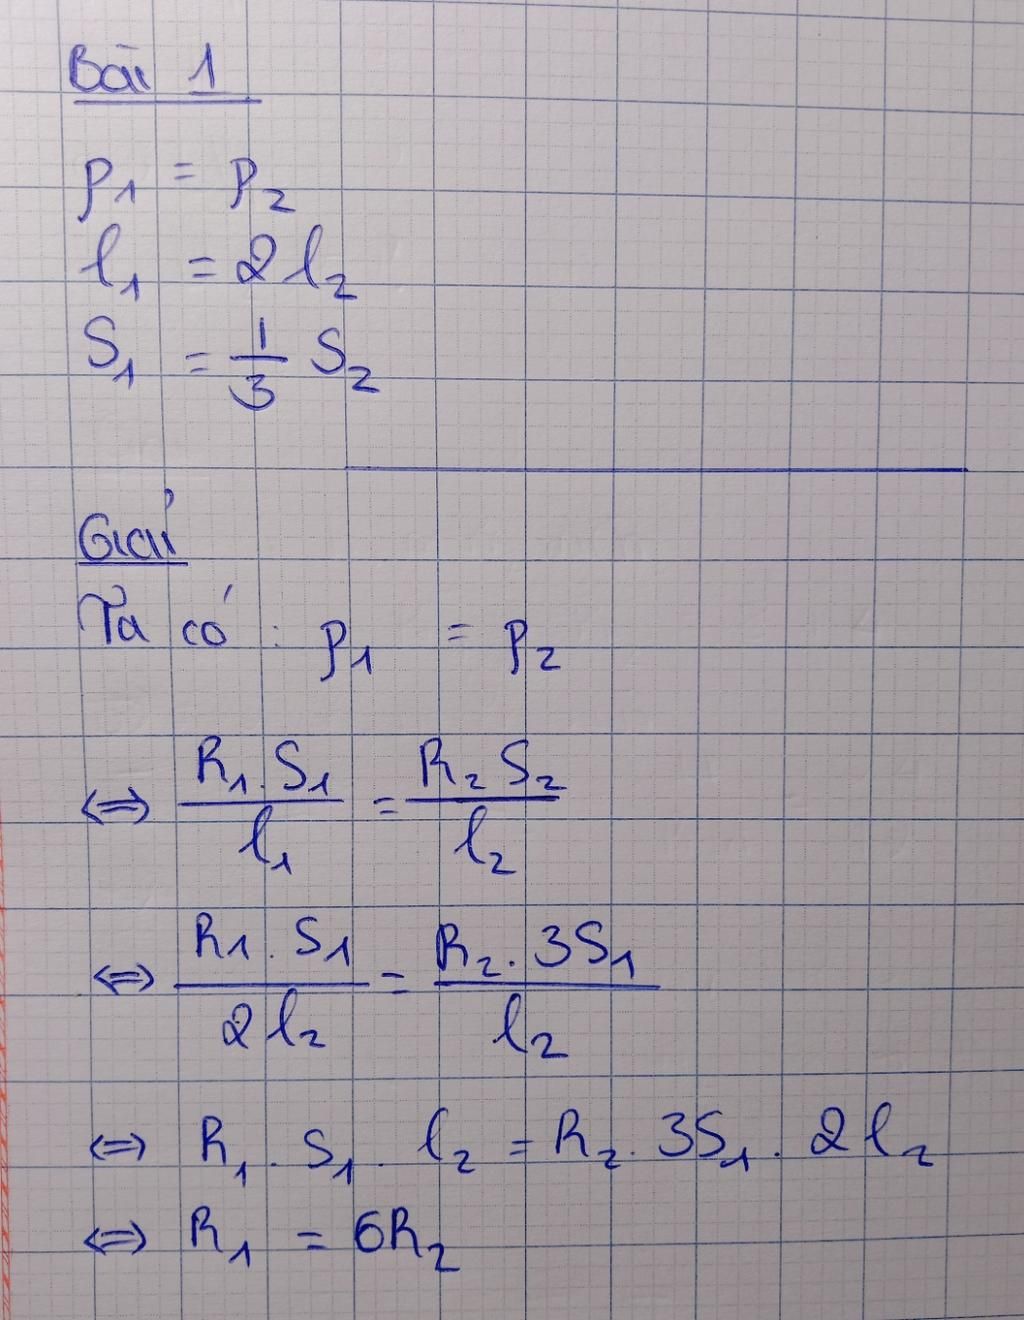 Bài 1
ρ₁ = ρ₂
l₁ = 2l₂
S₁ = 1/3 S₂
Giải
Ta có : ρ₁ = ρ₂
⇔ R₁.S₁/l₁ = R₂S₂/l₂
⇔ R₁.S₁/2l₂ = R₂.3S₁/l₂
⇔ R₁.S₁.l₂ = R₂.3S₁.2l₂
⇔ R₁ = 6R₂